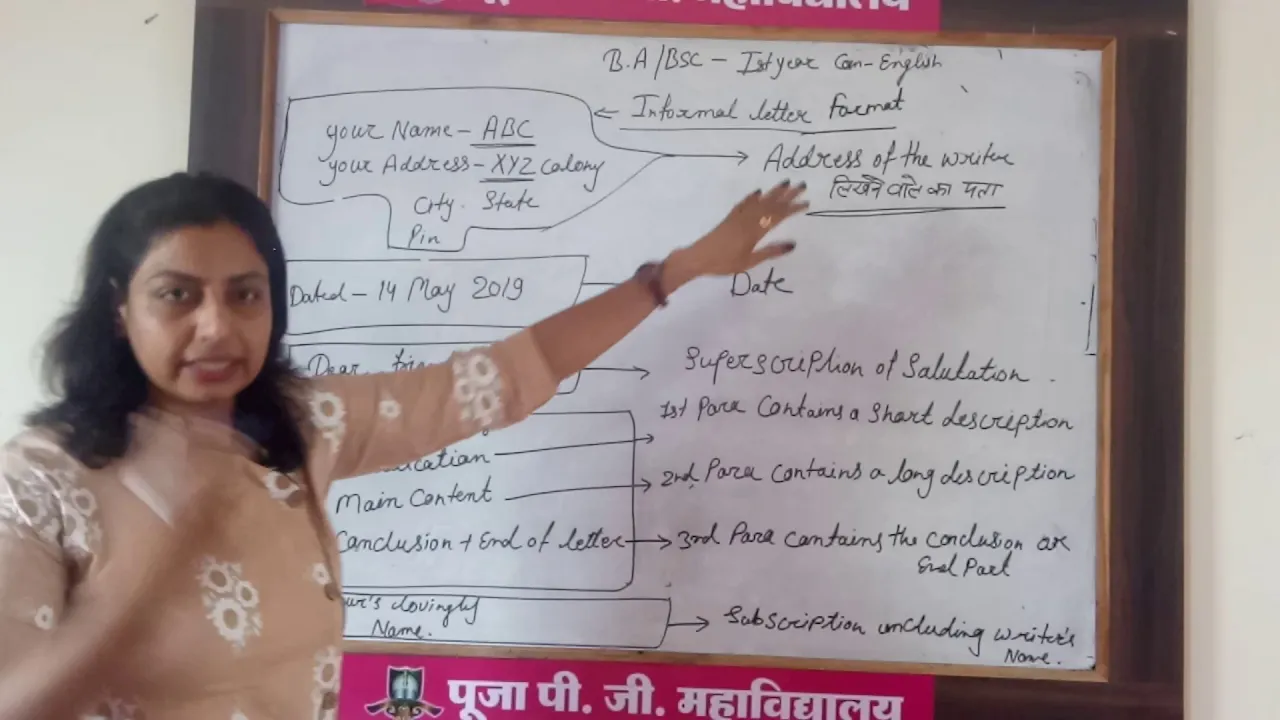 महाविद्यालय
B.A/BSC - Ist year Com-English
Informal letter format
your Name - ABC
your Address - XYZ Colony
City. State
Pin
Address of the writer
लिखने वाले का पता
Dated - 14 May 2019
Date
Dear
Superscription of Salutation.
1st Para Contains a Short description
Main Content
2nd Para contains a long description
Conclusion + End of letter
3rd Para contains the conclusion or
End Part
lovingly
Name.
Subscription including writer's
Name.
पूजा पी. जी. महाविद्यालय